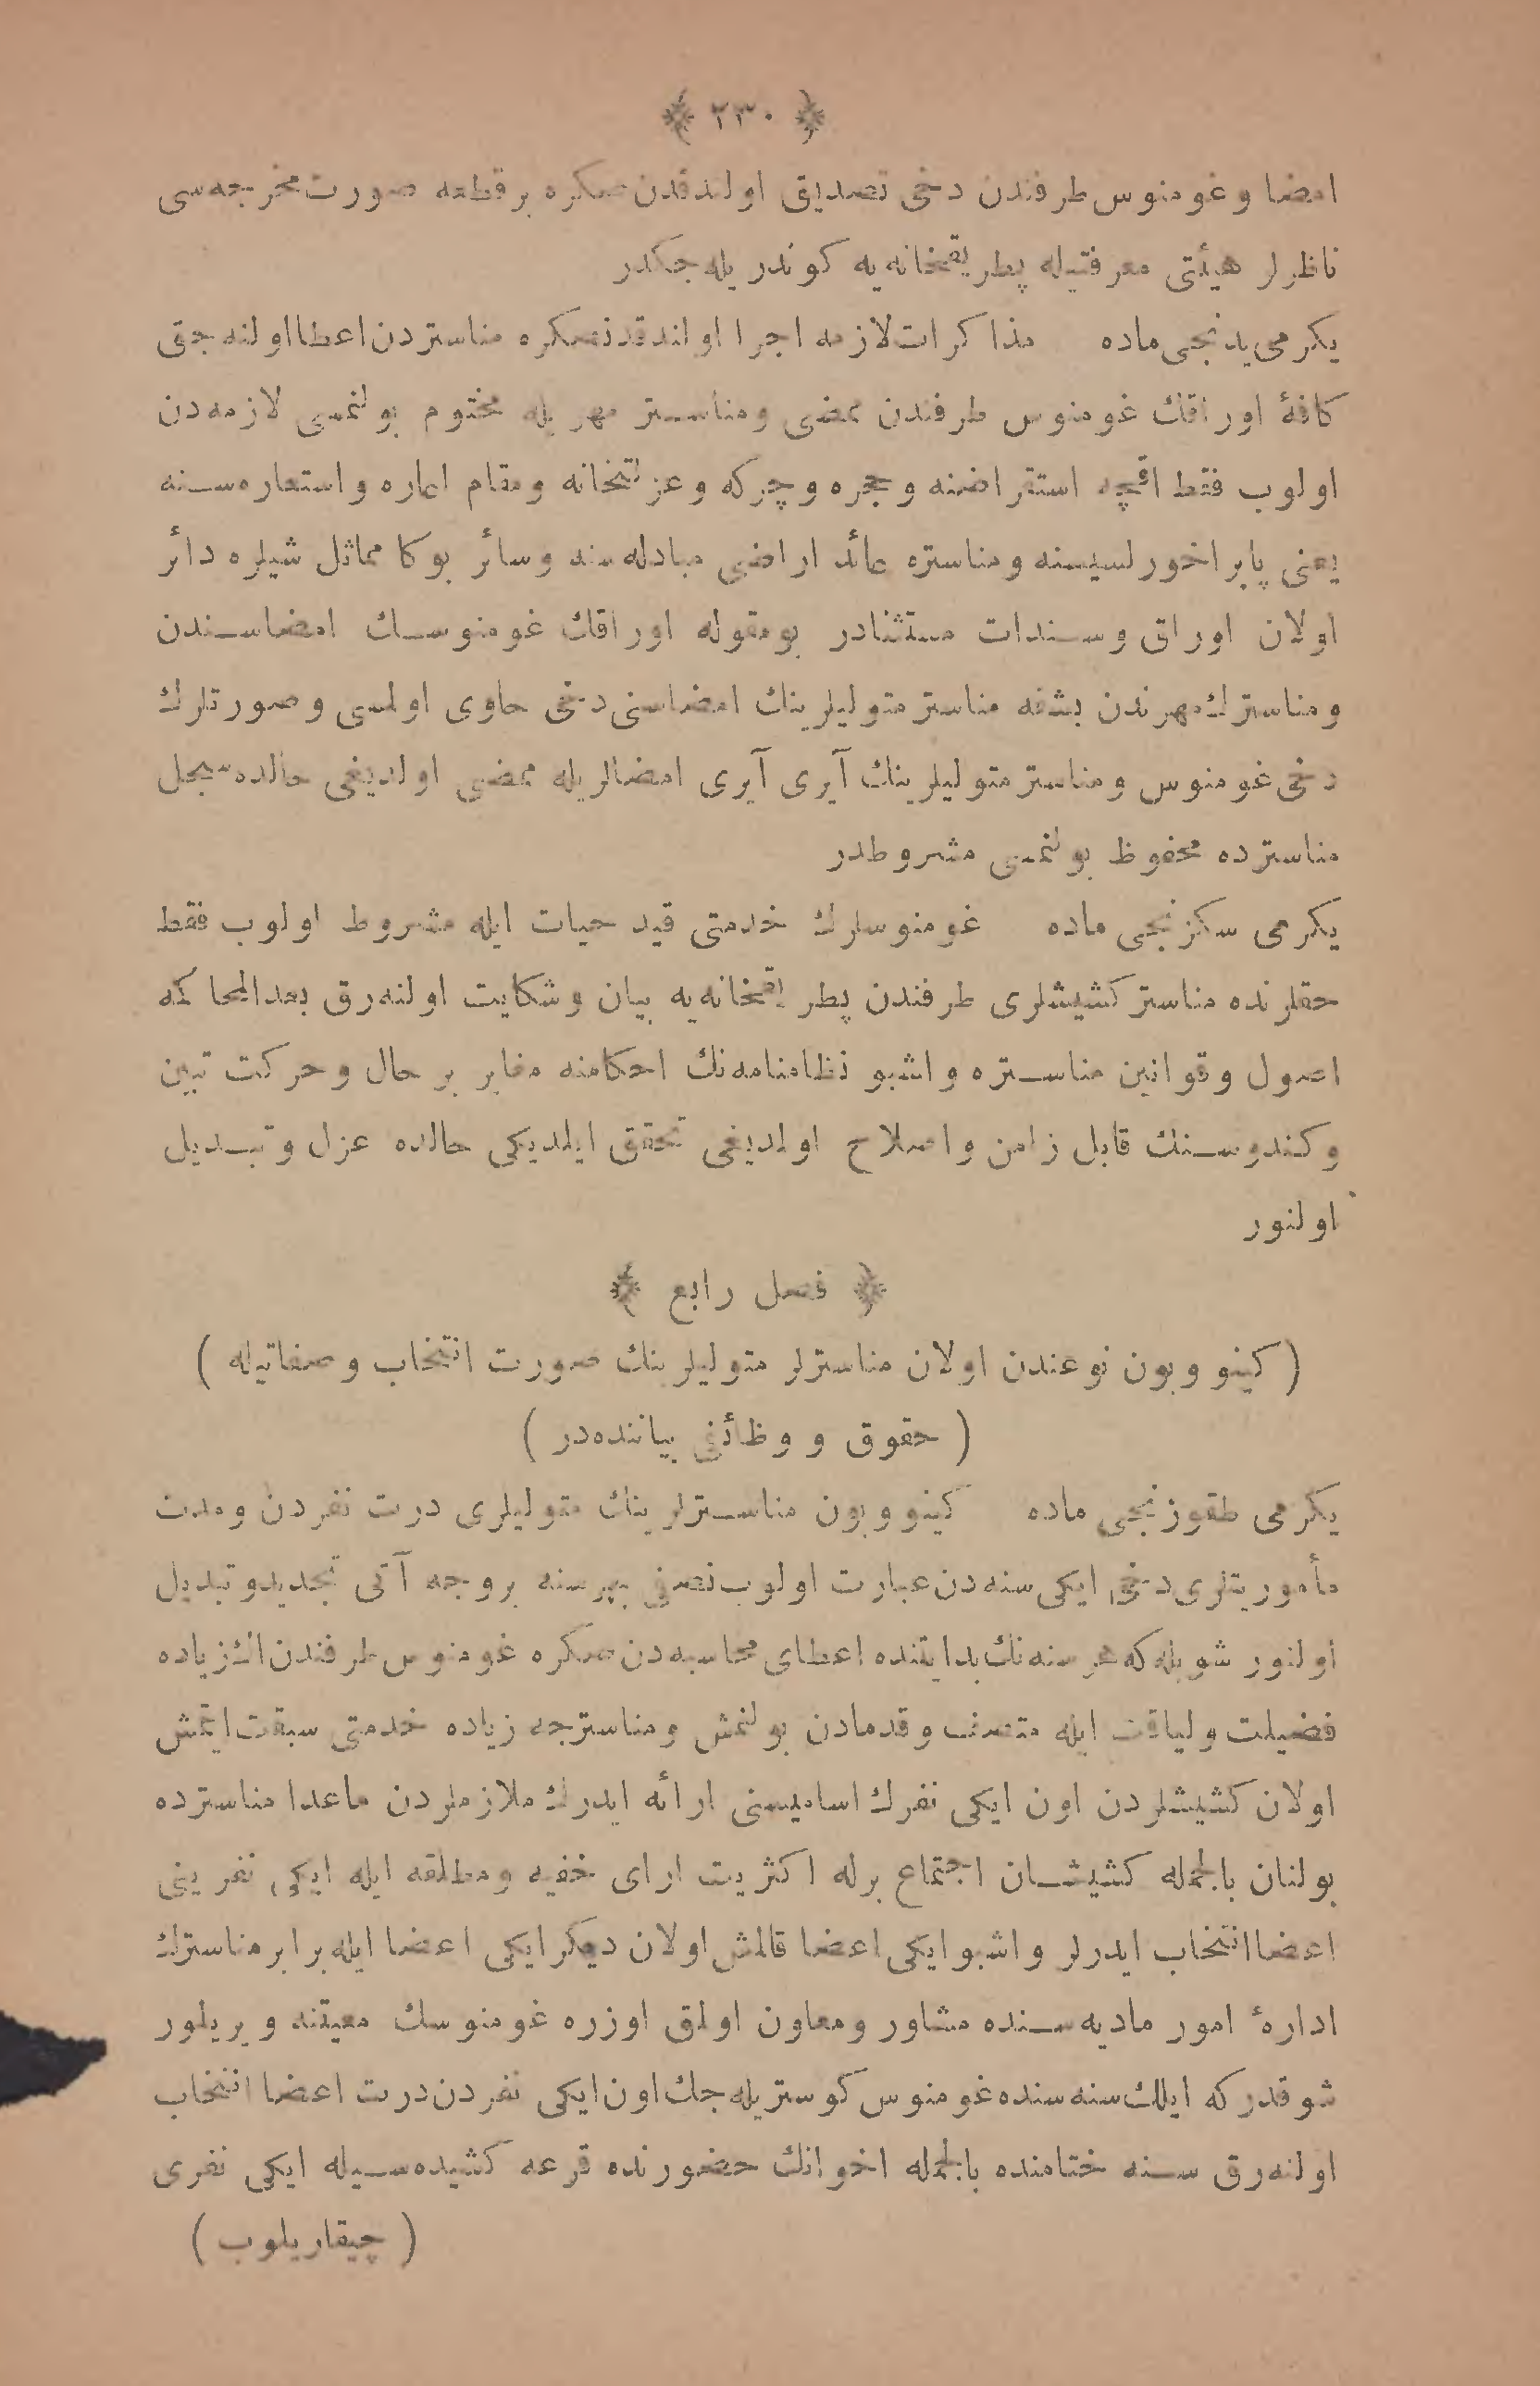 ﴿ ٢٣٠ ﴾
امضا و غومنوس طرفندن دخى تصديق اولندقدن صكره بر قطعه صورت مخرجه‌سى
ناظرلر هيئتى معرفتيله پطريقخانه‌يه كوندريله‌جكدر
يكرمى يدنجى ماده مذاكرات لازمه اجرا اولندقدنصكره مناستردن اعطا اولنه‌جق
كافهٔ اوراقك غومنوس طرفندن ممضى ومناستر مهريله مختوم بولنمسى لازمه‌دن
اولوب فقط اقچه استقراضنه و حجره و چركه و عزلتخانه ومقام اعاره واستعاره‌سنه
يعنى پابراخورلسيسنه ومناستره عائد اراضى مبادله‌سنه وسائر بوكا مماثل شيلره دائر
اولان اوراق وسندات مستثنادر بومقوله اوراقك غومنوسك امضاسندن
ومناسترك مهرندن بشقه مناستر متوليلرينك امضاسنى دخى حاوى اولمسى وصورتلرك
دخى غومنوس ومناستر متوليلرينك آيرى آيرى امضالريله ممضى اولديغى حالده سجل
مناسترده محفوظ بولنمسى مشروطدر
يكرمى سكزنجى ماده غومنوسلرك خدمتى قيد حيات ايله مشروط اولوب فقط
حقلرنده مناستر كشيشلرى طرفندن پطريقخانه‌يه بيان وشكايت اولنه‌رق بعدالمحاكمه
اصول وقوانين مناستره واشبو نظامنامه‌نك احكامنه مغاير بر حال وحركت تبين
وكندوسنك قابل زامن واصلاح اولديغى تحقق ايلديكى حالده عزل وتبديل
اولنور
﴿ فصل رابع ﴾
( كينوويون نوعندن اولان مناسترلر متوليلرينك صورت انتخاب وصفاتيله )
( حقوق و وظائفى بياننده‌در )
يكرمى طقوزنجى ماده كينوويون مناسترلرينك متوليلرى درت نفردن ومدت
مأموريتلرى دخى ايكى سنه‌دن عبارت اولوب نصفى بهر سنه بروجه آتى تجديد و تبديل
اولنور شويله‌كه هر سنه‌نك بدايتنده اعطاى محاسبه‌دن صكره غومنوس طرفندن اڭ زياده
فضيلت ولياقت ايله متصف وقدمادن بولنمش ومناسترجه زياده خدمتى سبقت ايتمش
اولان كشيشلردن اون ايكى نفرك اساميسنى ارائه ايدرك ملازملردن ماعدا مناسترده
بولنان بالجمله كشيشان اجتماع برله اكثريت اراى خفيه ومطلقه ايله ايكى نفرينى
اعضا انتخاب ايدرلر واشبو ايكى اعضا قالمش اولان ديكر ايكى اعضا ايله برابر مناسترك
ادارهٔ امور ماديه‌سنده مشاور ومعاون اولمق اوزره غومنوسك معيتنه ويريلور
شوقدركه ايلك سنه سنده غومنوس كوستريله‌جك اون ايكى نفردن درت اعضا انتخاب
اولنه‌رق سنه ختامنده بالجمله اخوانك حضورنده قرعه كشيده‌سيله ايكى نفرى
( چيقاريلوب )